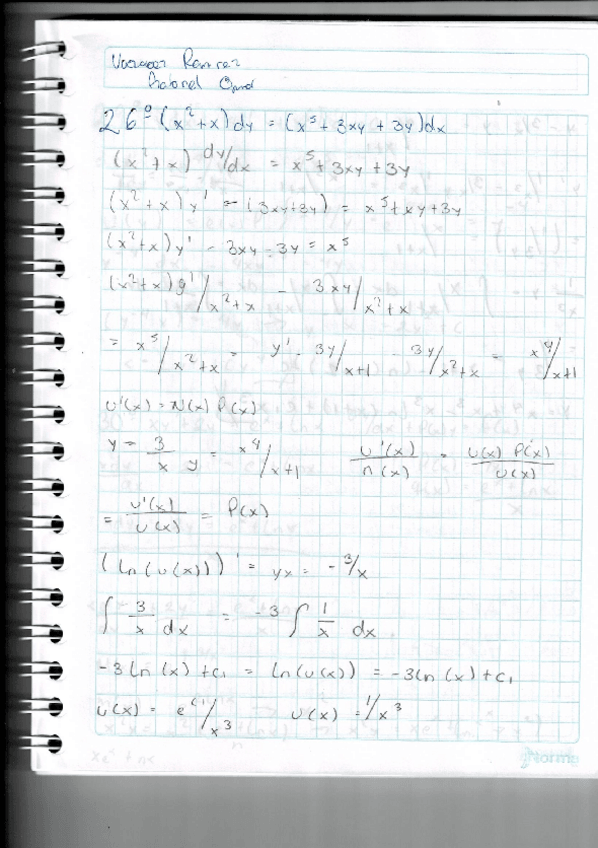 26° (x² + x) dy = (x⁵ + 3xy + 3y) dx
(x² + x) dy/dx = x⁵ + 3xy + 3y
(x² + x) y' - (3xy+3y) = x⁵ + xy + 3y
(x² + x) y' - 3xy - 3y = x⁵
(x² + x) y' / x² + x - 3xy / x² + x
= x⁵ / x² + x = y' - 3y / x+1 - 3y / x² + x = x⁴ / x+1
u'(x) = N(x) P(x)
y = 3/x y = x⁴ / x+1 u'(x)/n(x) = u(x) P(x)/u(x)
= u'(x)/u(x) = P(x)
(ln(u(x)))' = yx = - 3/x
∫ 3/x dx = -3 ∫ 1/x dx
-3 ln(x) + c₁ = ln(u(x)) = -3 ln(x) + c₁
u(x) = e^c₁ / x³ u(x) = 1/x³
Norma